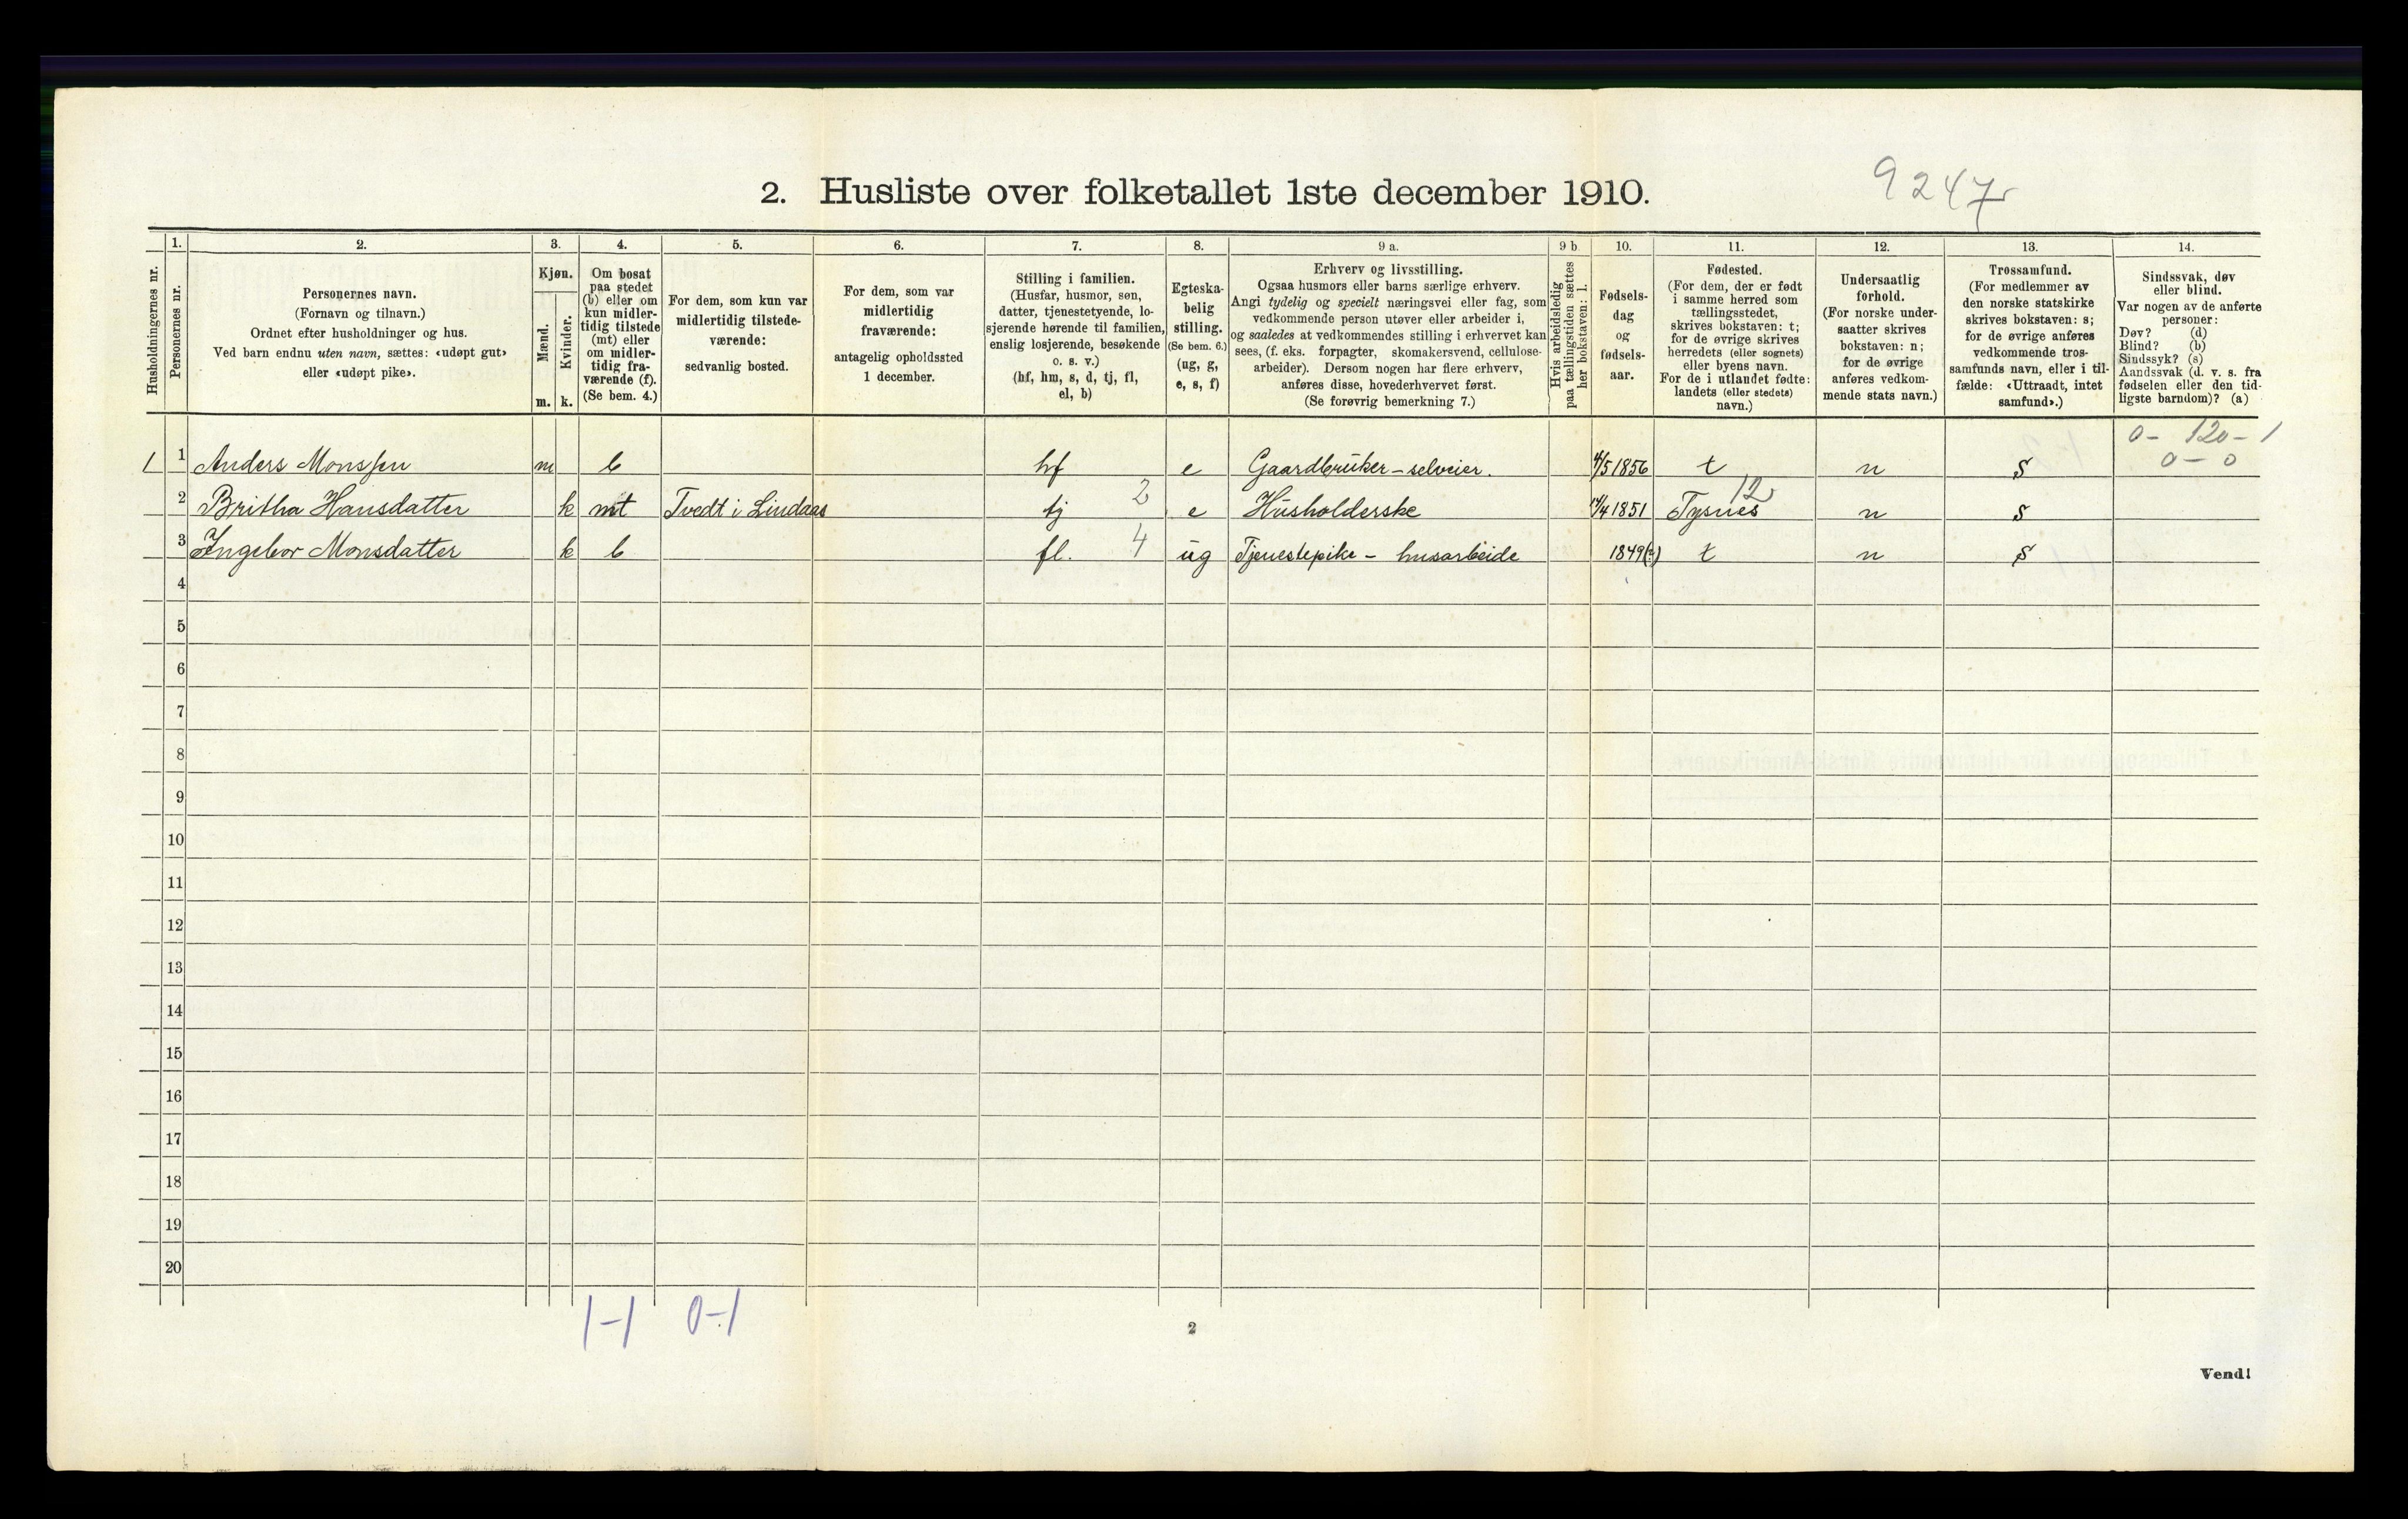 9247
2. Husliste over folketallet 1ste december 1910.
Husholdningernes nr.
1.
Personernes nr.
2.
Personernes navn.
(Fornavn og tilnavn.)
Ordnet efter husholdninger og hus.
Ved barn endnu uten navn, sættes: «udøpt gut»
eller «udøpt pike».
3.
Kjøn.
Mænd.
Kvinder.
m. k.
4.
Om bosat
paa stedet
(b) eller om
kun midler-
tidig tilstede
(mt) eller
om midler-
tidig fra-
værende (f).
(Se bem. 4.)
5.
For dem, som kun var
midlertidig tilstede-
værende:
sedvanlig bosted.
6.
For dem, som var
midlertidig
fraværende:
antagelig opholdssted
1 december.
7.
Stilling i familien.
(Husfar, husmor, søn,
datter, tjenestetyende, lo-
sjerende hørende til familien,
enslig losjerende, besøkende
o. s. v.)
(hf, hm, s, d, tj, fl,
el, b)
8.
Egteska-
belig
stilling.
(Se bem. 6.)
(ug, g,
e, s, f)
9 a.
Erhverv og livsstilling.
Ogsaa husmors eller barns særlige erhverv.
Angi tydelig og specielt næringsvei eller fag, som
vedkommende person utøver eller arbeider i,
og saaledes at vedkommendes stilling i erhvervet kan
sees, (f. eks. forpagter, skomakersvend, cellulose-
arbeider). Dersom nogen har flere erhverv,
anføres disse, hovederhvervet først.
(Se forøvrig bemerkning 7.)
9 b.
Hvis arbeidsledig
paa tællingstiden sættes
her bokstaven: l.
10.
Fødsels-
dag
og
fødsels-
aar.
11.
Fødested.
(For dem, der er født
i samme herred som
tællingsstedet,
skrives bokstaven: t;
for de øvrige skrives
herredets (eller sognets)
eller byens navn.
For de i utlandet fødte:
landets (eller stedets)
navn.)
12.
Undersaatlig
forhold.
(For norske under-
saatter skrives
bokstaven: n;
for de øvrige
anføres vedkom-
mende stats navn.)
13.
Trossamfund.
(For medlemmer av
den norske statskirke
skrives bokstaven: s;
for de øvrige anføres
vedkommende tros-
samfunds navn, eller i til-
fælde: «Uttraadt, intet
samfund».)
14.
Sindssvak, døv
eller blind.
Var nogen av de anførte
personer:
Døv? (d)
Blind? (b)
Sindssyk? (s)
Aandssvak (d. v. s. fra
fødselen eller den tid-
ligste barndom)? (a)
0- 120-1
0-0
1 1 Anders Monssen m b hf e Gaardbruker - selveier. 4/5 1856 t n s
2 Britha Hansdatter k mt Tvedt i Lindaas tj 2 e Husholderske 14/4 1851 Tysnes 12 n s
3 Ingebor Monsdatter k b fl. 4 ug Tjenestepike - husarbeide 1849(?) t n s
4
5
6
7
8
9
10
11
12
13
14
15
16
17
18
19
20
1-1 0-1
2
Vend!